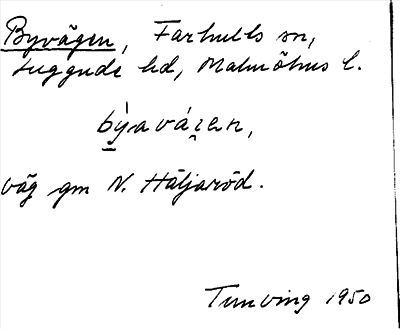 Byvägen, Farhults sn,
Luggude hd, Malmöhus l.
býavázen,
väg gm N. Häljaröd.
Tunving 1950